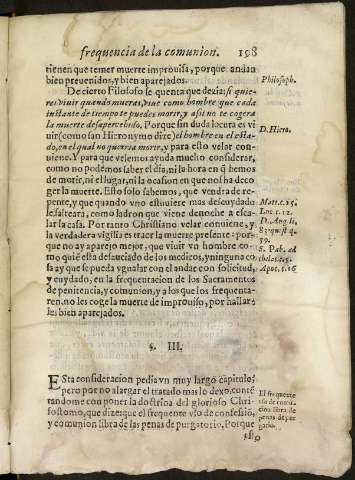 frequencia de la comunion. 198
tienen que temer muerte improuisa, porque andan
bien preuenidos, y bien aparejados.
De cierto Filosofo se quenta que dezia: si quie-
res viuir quando mueras, viue como hombre que cada
instante de tiempo te puedes morir, y assi no te cogera
la muerte desapercebido. Porque sin duda locura es vi
uir (como san Hieronymo dize) el hombre en el esta-
do, en el qual no querria morir, y para esto velar con
uiene. Y para que velemos ayuda mucho considerar,
como no podemos saber el dia, ni la hora en q̃ hemos
de morir, ni el lugar, ni la ocasion en que nos ha de co
ger la muerte. Esto solo sabemos, que vendra de re-
pente, y que quando vno estuuiere mas descuydado
le salteara, como ladron que viene de noche a esca-
lar la casa. Por tanto Christiano velar conuiene, y
la verdadera vigilia es traer la muerte presente: por-
que no ay aparejo mejor, que viuir vn hombre co-
mo quiẽ esta desauciado de los medicos, y ninguna co
sa ay que se pueda ygualar con el andar con solicitud,
y cuydado, en la frequentacion de los Sacramentos
de penitencia, y comunion, y a los que los frequenta-
ren, no les coge la muerte de improuiso, por hallar-
les bien aparejados.
Philosoph.
D. Hiero.
Matt. c. 25.
Luc. c. 12.
D. Aug. li.
83. quest. q.
59.
S. Pab. ad
thesal. c. 5.
Apoc. c. 16
§. III.
Esta consideracion pedia vn muy largo capitulo,
pero por no alargar el tratado mas lo dexo, contẽ
tandome con poner la doctrina del glorioso Chri-
sostomo, que dize: que el frequente vso de confessiõ,
y comunion libra de las penas de purgatorio. Porque
El frequente
vso de comu-
nion libra de
penas de pur
gatorio.